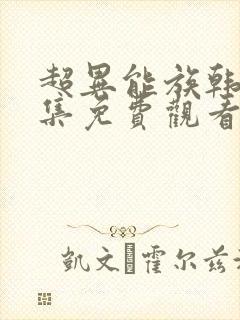 超異能族韩
集免費觀看
凱文·霍尔兹